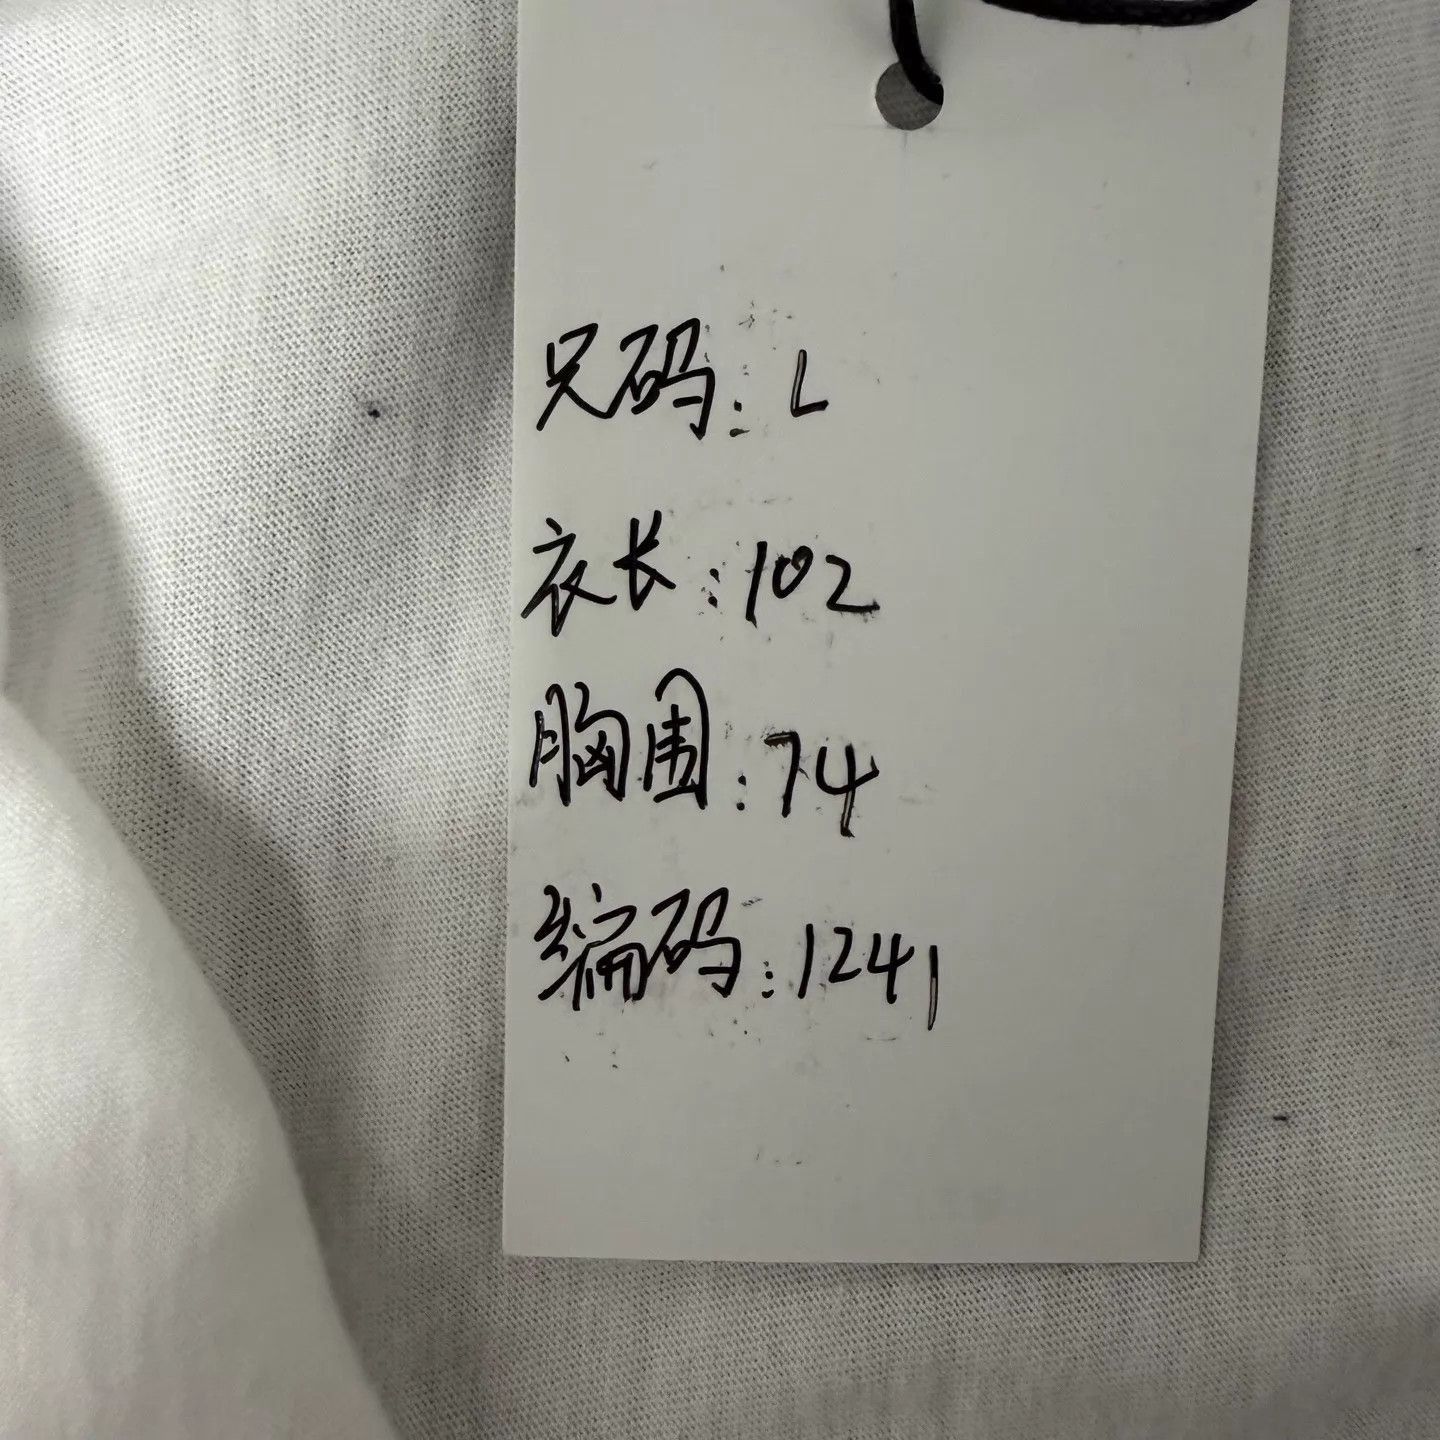 尺码:L
衣长:102
胸围:74
编码:1241